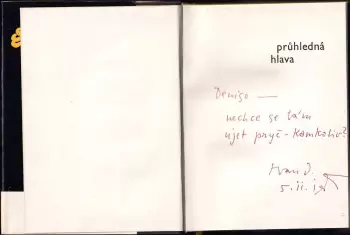 průhledná
hlava
Deniso —
nechce se Vám
ujet pryč – kamkoliv?
Ivan D.
5. II.